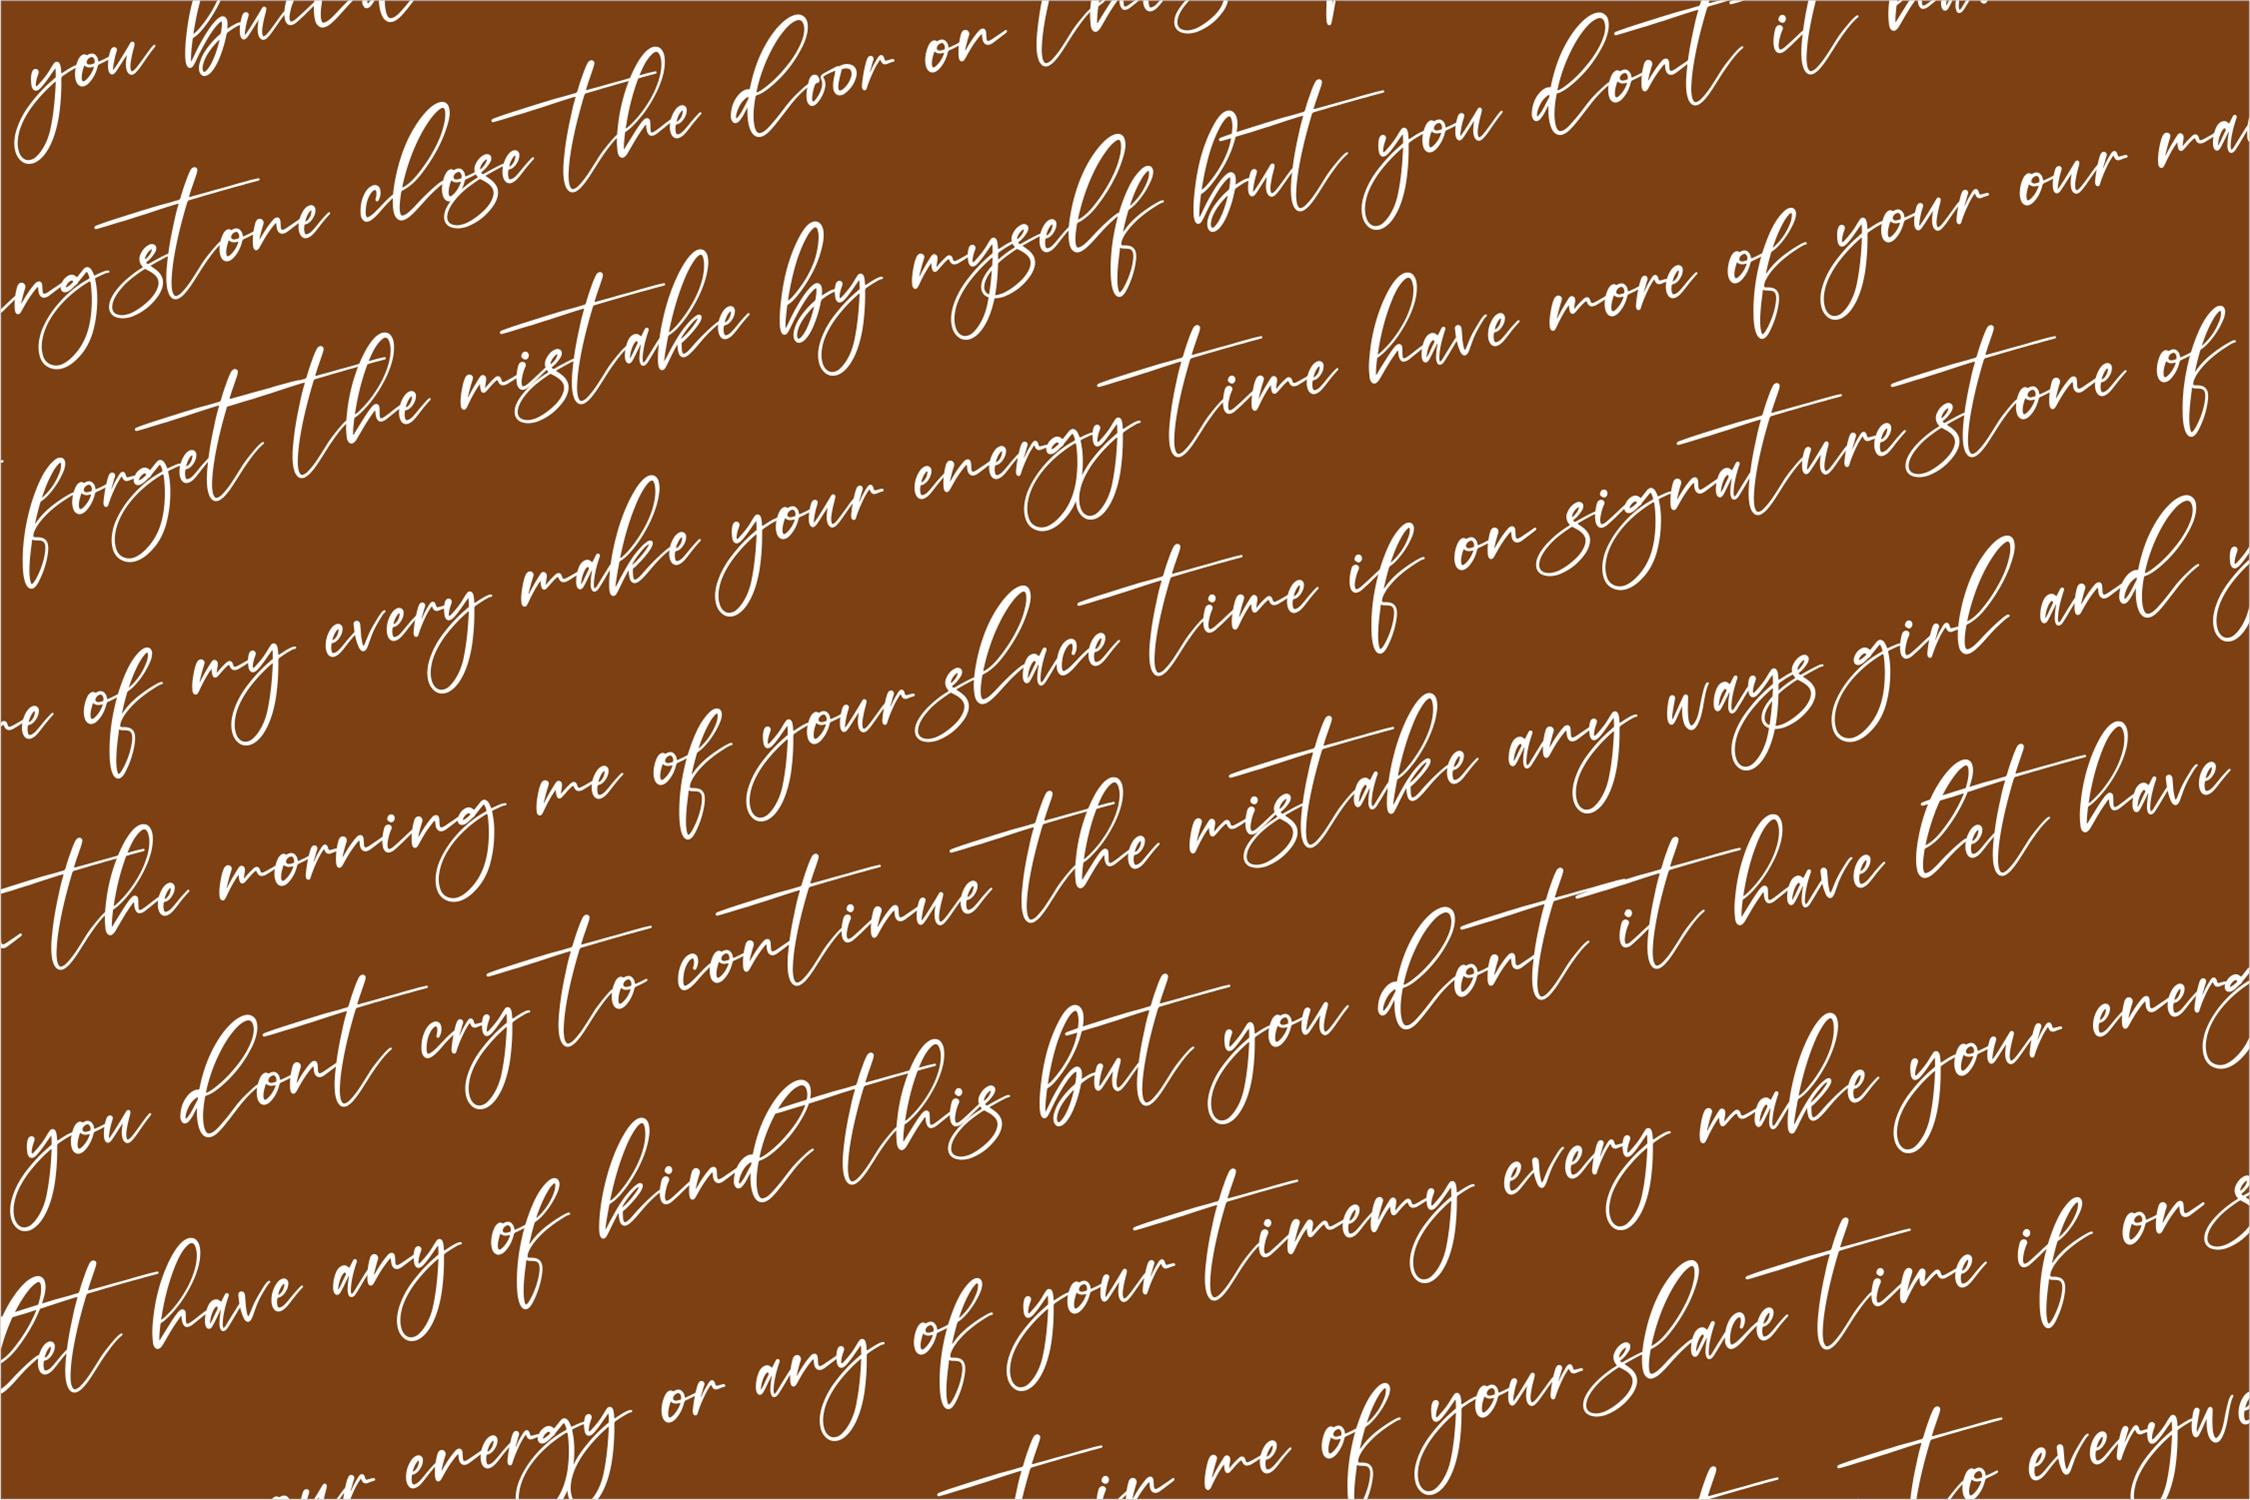 you build
ng stone close the door on this
forget the mistake by myself but you dont it
of my every make your energy time have more of your our ma
the morning me of your slace time if on signature stone of
you dont cry to continue the mistake any ways girl and y
let have any of kind this but you dont it have let have
ur energy or any of your timemy every make your energ
in me of your slace time if on s
to everywe